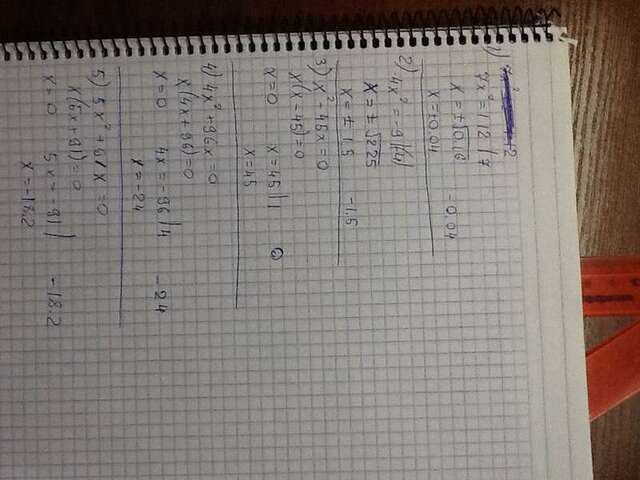 1)
7x² = 1,12 | 7
x = ±√0,16
x = ±0.04 -0.04
2) 4x² = 9 | (4)
x = ±√2.25
x = ± 1.5 -1.5
3) x² - 45x = 0
x(x - 45) = 0
x = 0 x = 45 | 1 0
x = 45
4) 4x² + 96x = 0
x(4x + 96) = 0
x = 0 4x = -96 | 4 -24
x = -24
5) 5x² + 91x = 0
x(5x + 91) = 0
x = 0 5x = -91 | -18.2
x = -18.2